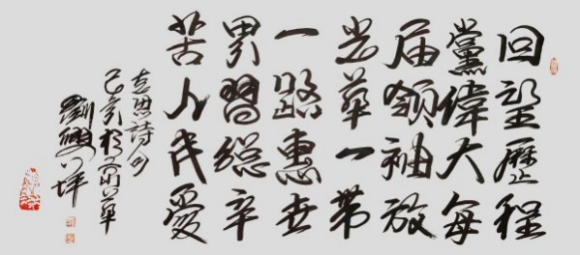 回望歷程
黨偉大每
届領袖放
光華一帶
一路惠世
界習總辛
苦人民愛
思詩句
己亥於
劉